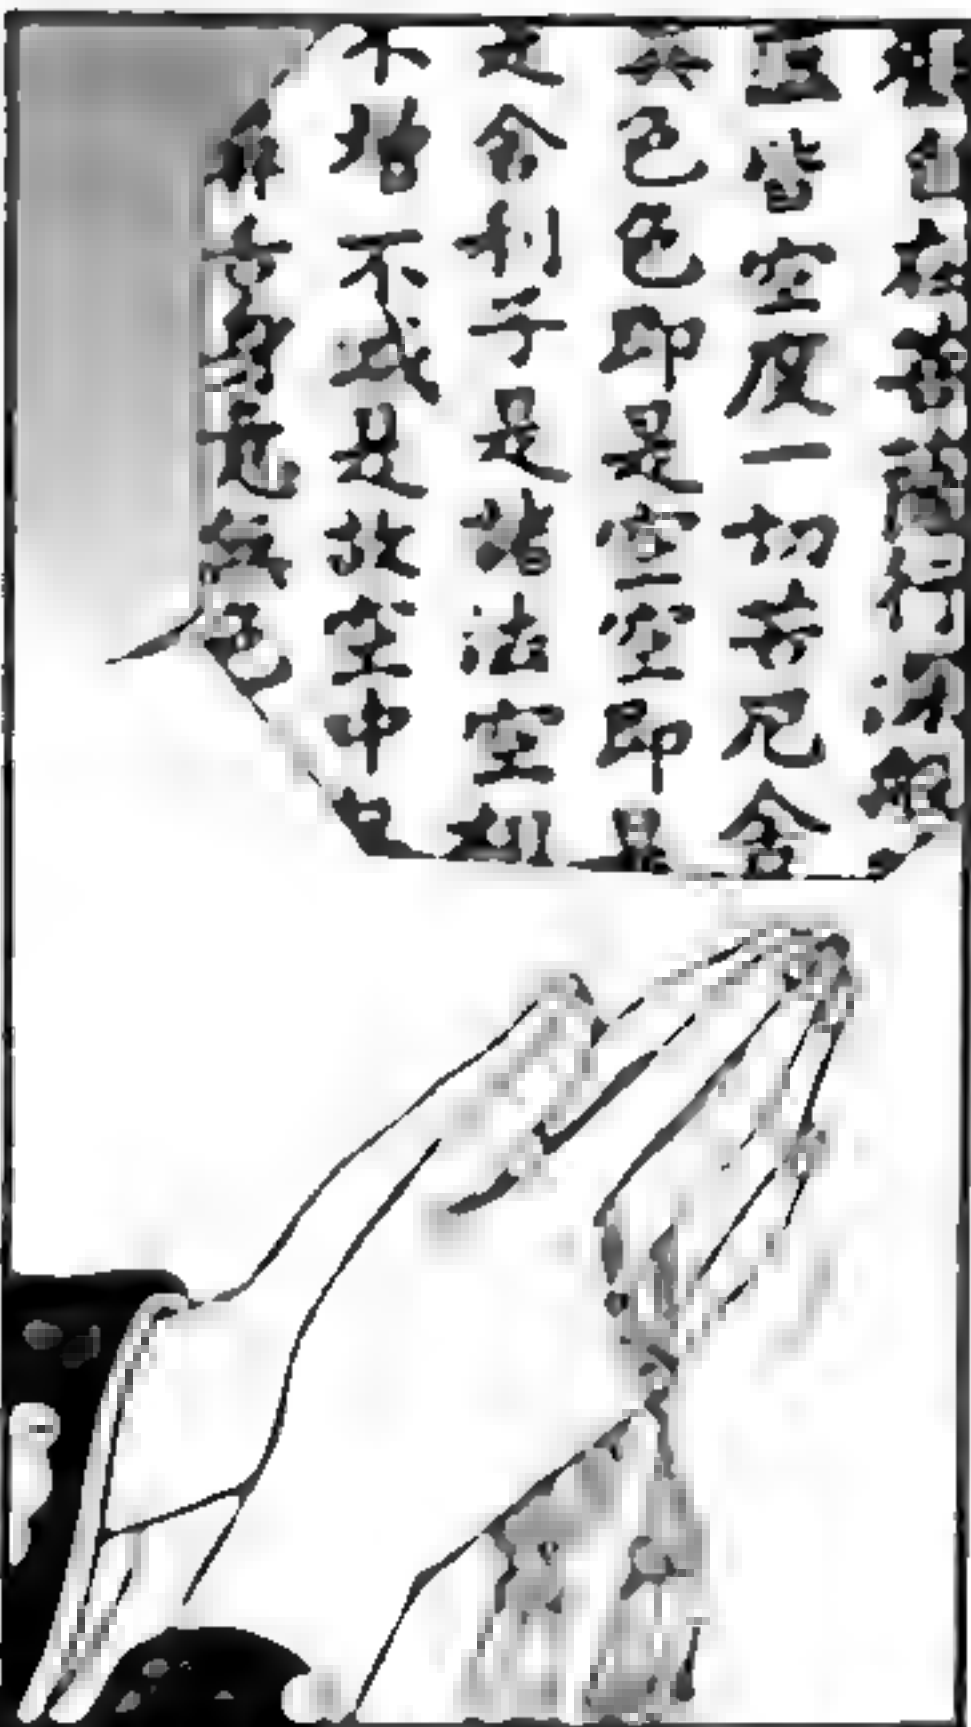 自在菩薩行深般
皆空度一切苦厄舍
異色色即是空空即是
是舍利子是諸法空相
不增不減是故空中
耳舌身意無色